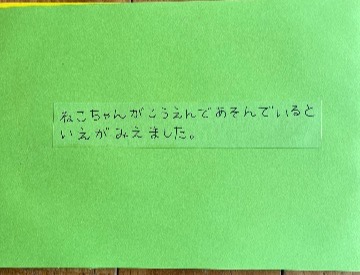 ねこちゃんがこうえんであそんでいると
いえがみえました。